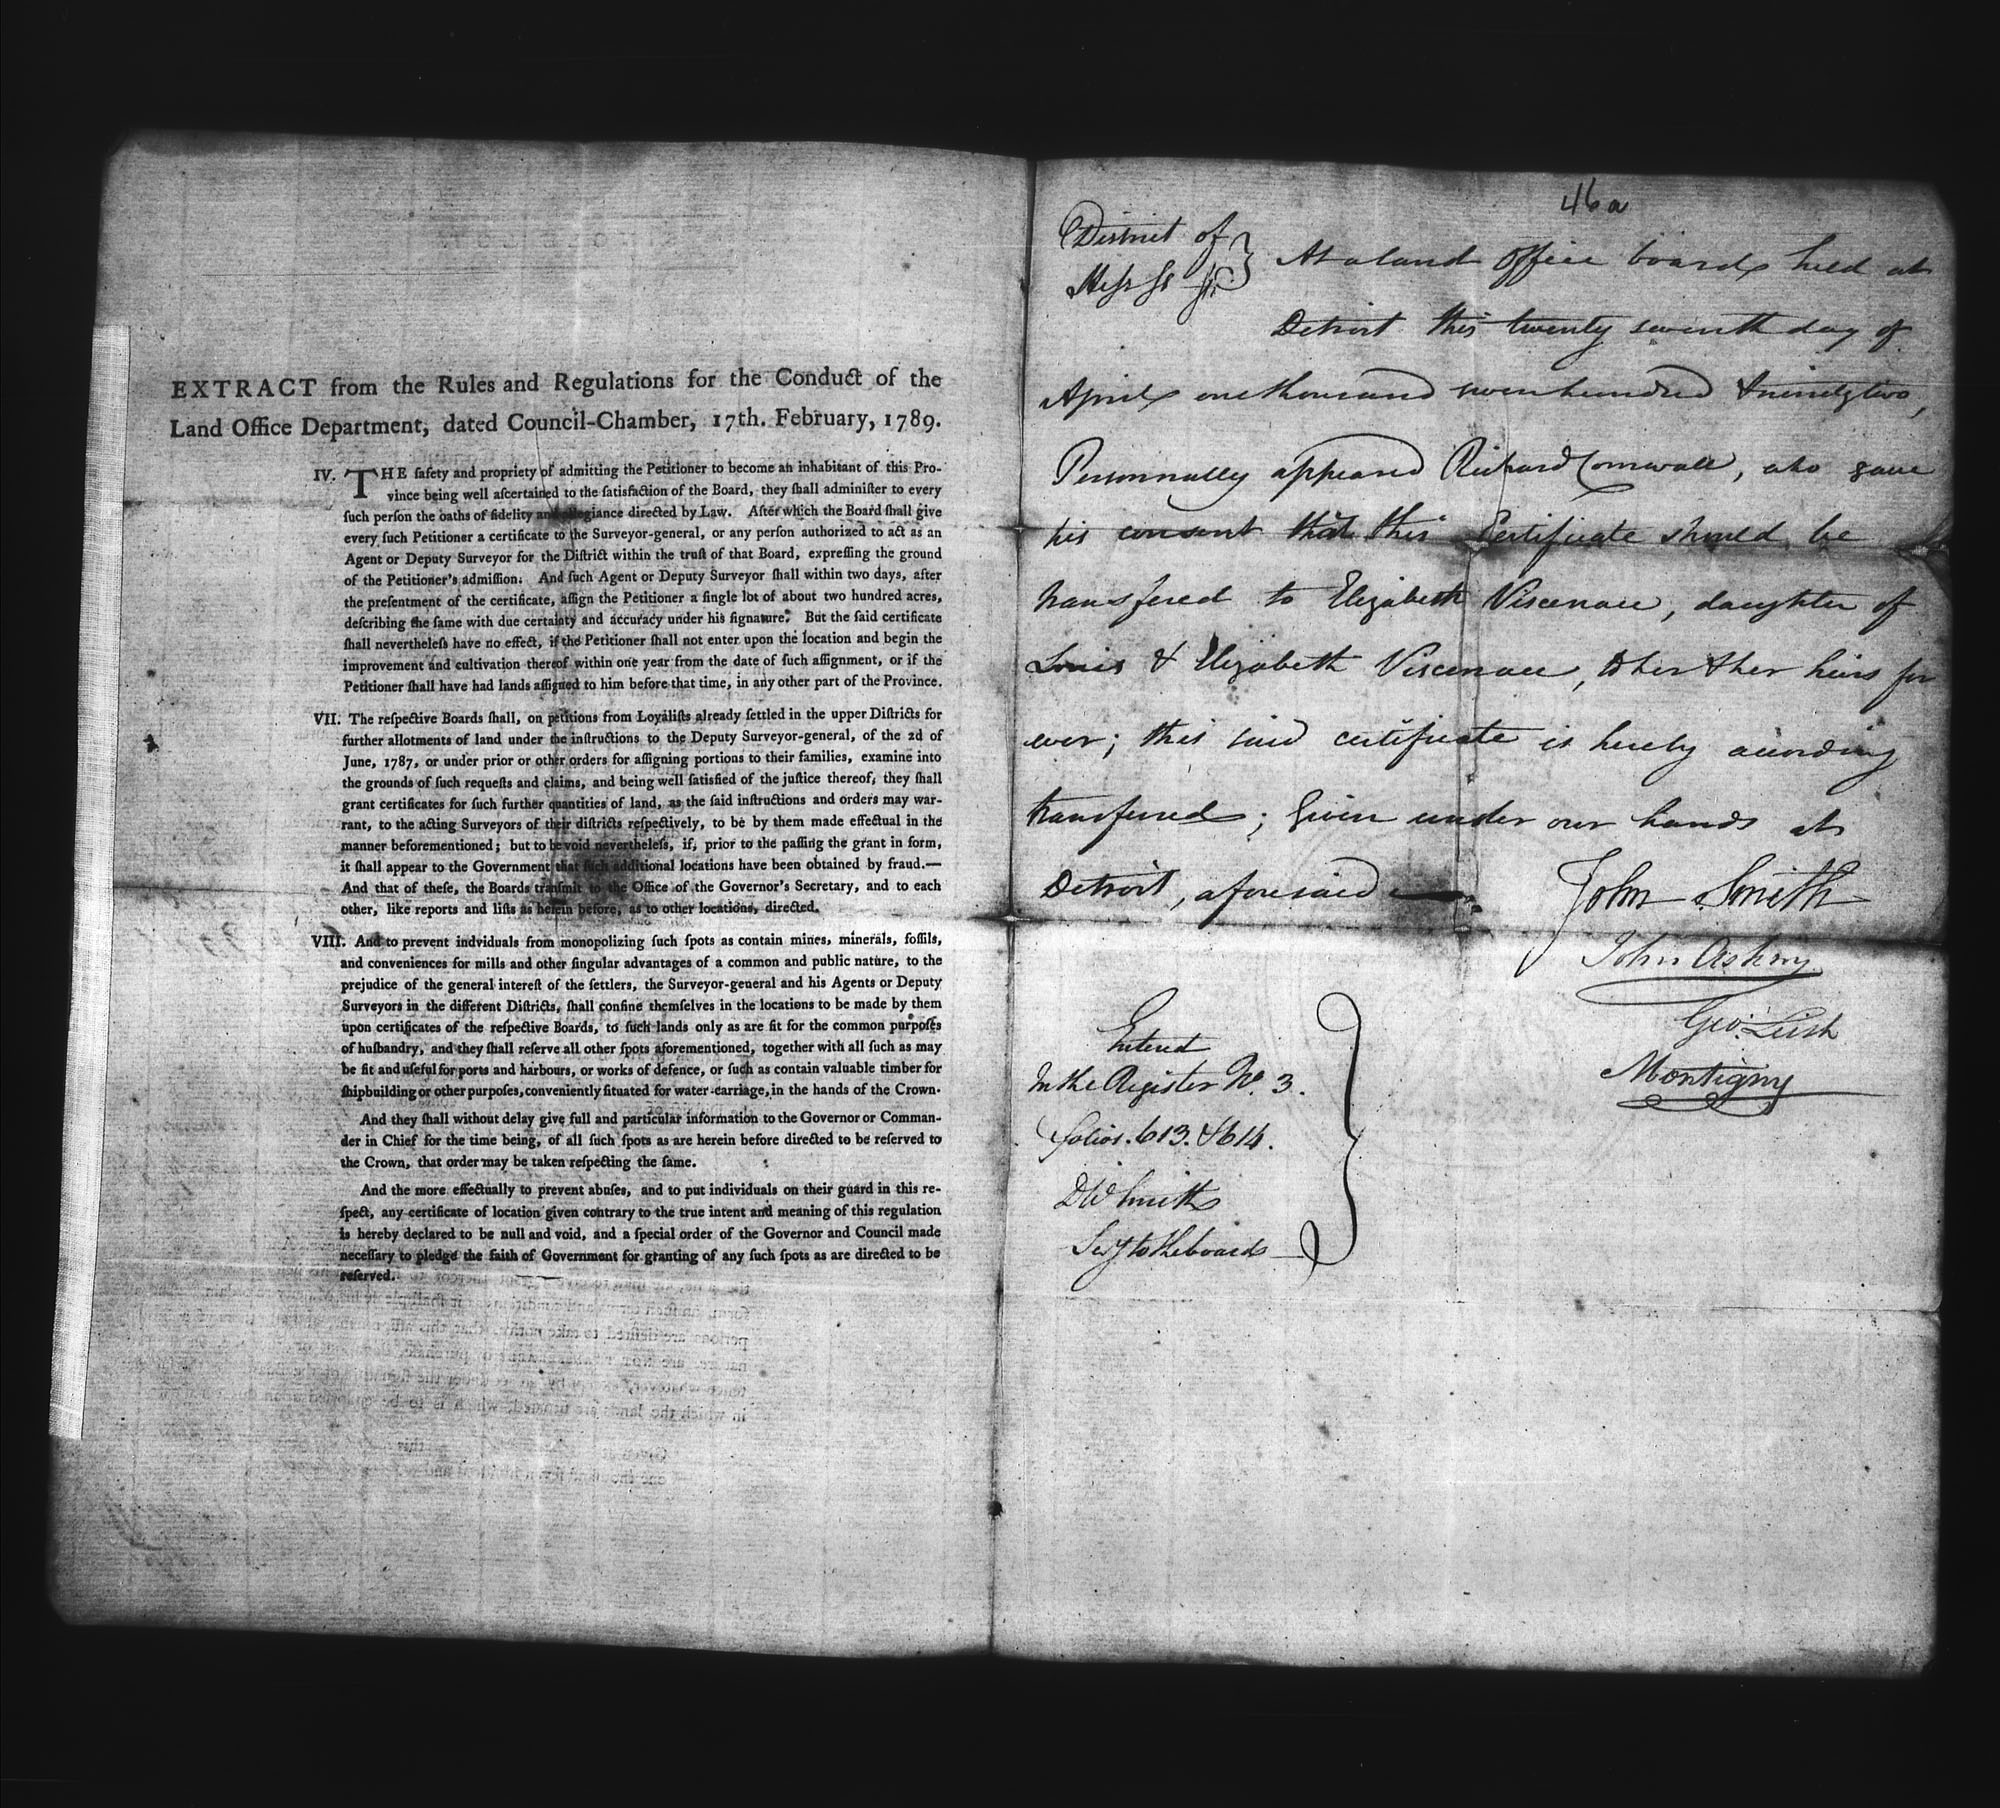 EXTRACT from the Rules and Regulations for the Conduct of the
Land Office Department, dated Council-Chamber, 17th. February, 1789.
IV. THE ſafety and propriety of admitting the Petitioner to become an inhabitant of this Pro-
vince being well aſcertained to the ſatisfaction of the Board, they ſhall adminiſter to every
ſuch perſon the oaths of fidelity and allegiance directed by Law. After which the Board ſhall give
every ſuch Petitioner a certificate to the Surveyor-general, or any perſon authorized to act as an
Agent or Deputy Surveyor for the Diſtrict within the truſt of that Board, expreſſing the ground
of the Petitioner's admiſſion. And ſuch Agent or Deputy Surveyor ſhall within two days, after
the preſentment of the certificate, aſſign the Petitioner a ſingle lot of about two hundred acres,
deſcribing the ſame with due certainty and accuracy under his ſignature. But the ſaid certificate
ſhall nevertheleſs have no effect, if the Petitioner ſhall not enter upon the location and begin the
improvement and cultivation thereof within one year from the date of ſuch aſſignment, or if the
Petitioner ſhall have had lands aſſigned to him before that time, in any other part of the Province.
VII. The reſpective Boards ſhall, on petitions from Loyaliſts already ſettled in the upper Diſtricts for
further allotments of land under the inſtructions to the Deputy Surveyor-general, of the 2d of
June, 1787, or under prior or other orders for aſſigning portions to their families, examine into
the grounds of ſuch requeſts and claims, and being well ſatisfied of the juſtice thereof, they ſhall
grant certificates for ſuch further quantities of land, as the ſaid inſtructions and orders may war-
rant, to the acting Surveyors of their diſtricts reſpectively, to be by them made effectual in the
manner beforementioned; but to be void nevertheleſs, if, prior to the paſſing the grant in form,
it ſhall appear to the Government that ſuch additional locations have been obtained by fraud.—
And that of theſe, the Boards tranſmit to the Office of the Governor's Secretary, and to each
other, like reports and liſts as herein before, as to other locations, directed.
VIII. And to prevent indviduals from monopolizing ſuch ſpots as contain mines, minerals, foſſils,
and conveniences for mills and other ſingular advantages of a common and public nature, to the
prejudice of the general intereſt of the ſettlers, the Surveyor-general and his Agents or Deputy
Surveyors in the different Diſtricts, ſhall confine themſelves in the locations to be made by them
upon certificates of the reſpective Boards, to ſuch lands only as are fit for the common purpoſes
of huſbandry, and they ſhall reſerve all other ſpots aforementioned, together with all ſuch as may
be fit and uſeful for ports and harbours, or works of defence, or ſuch as contain valuable timber for
ſhipbuilding or other purpoſes, conveniently ſituated for water-carriage, in the hands of the Crown.
And they ſhall without delay give full and particular information to the Governor or Comman-
der in Chief for the time being, of all ſuch ſpots as are herein before directed to be reſerved to
the Crown, that order may be taken reſpecting the ſame.
And the more effectually to prevent abuſes, and to put individuals on their guard in this re-
ſpect, any certificate of location given contrary to the true intent and meaning of this regulation
is hereby declared to be null and void, and a ſpecial order of the Governor and Council made
neceſſary to pledge the faith of Government for granting of any ſuch ſpots as are directed to be
reſerved.
46a
District of
Heſse
At a land Office board held at
Detroit this twenty seventh day of
April one thousand seven hundred & ninety two,
Personnally appeared Richard Cornwall, who gave
his consent that this Certificate should be
transfered to Elizabeth Viscenace, daughter of
Louis & Elizabeth Viscenace, to her & her heirs for
ever; this said certificate is hereby acording
transferred; Given under our hands at
Detroit, aforesaid
John Smith
John Askin
Geo: Leith
Montigny
Entered
In the Register No. 3.
folios. 613. & 614.
DW Smith
Secy to the board